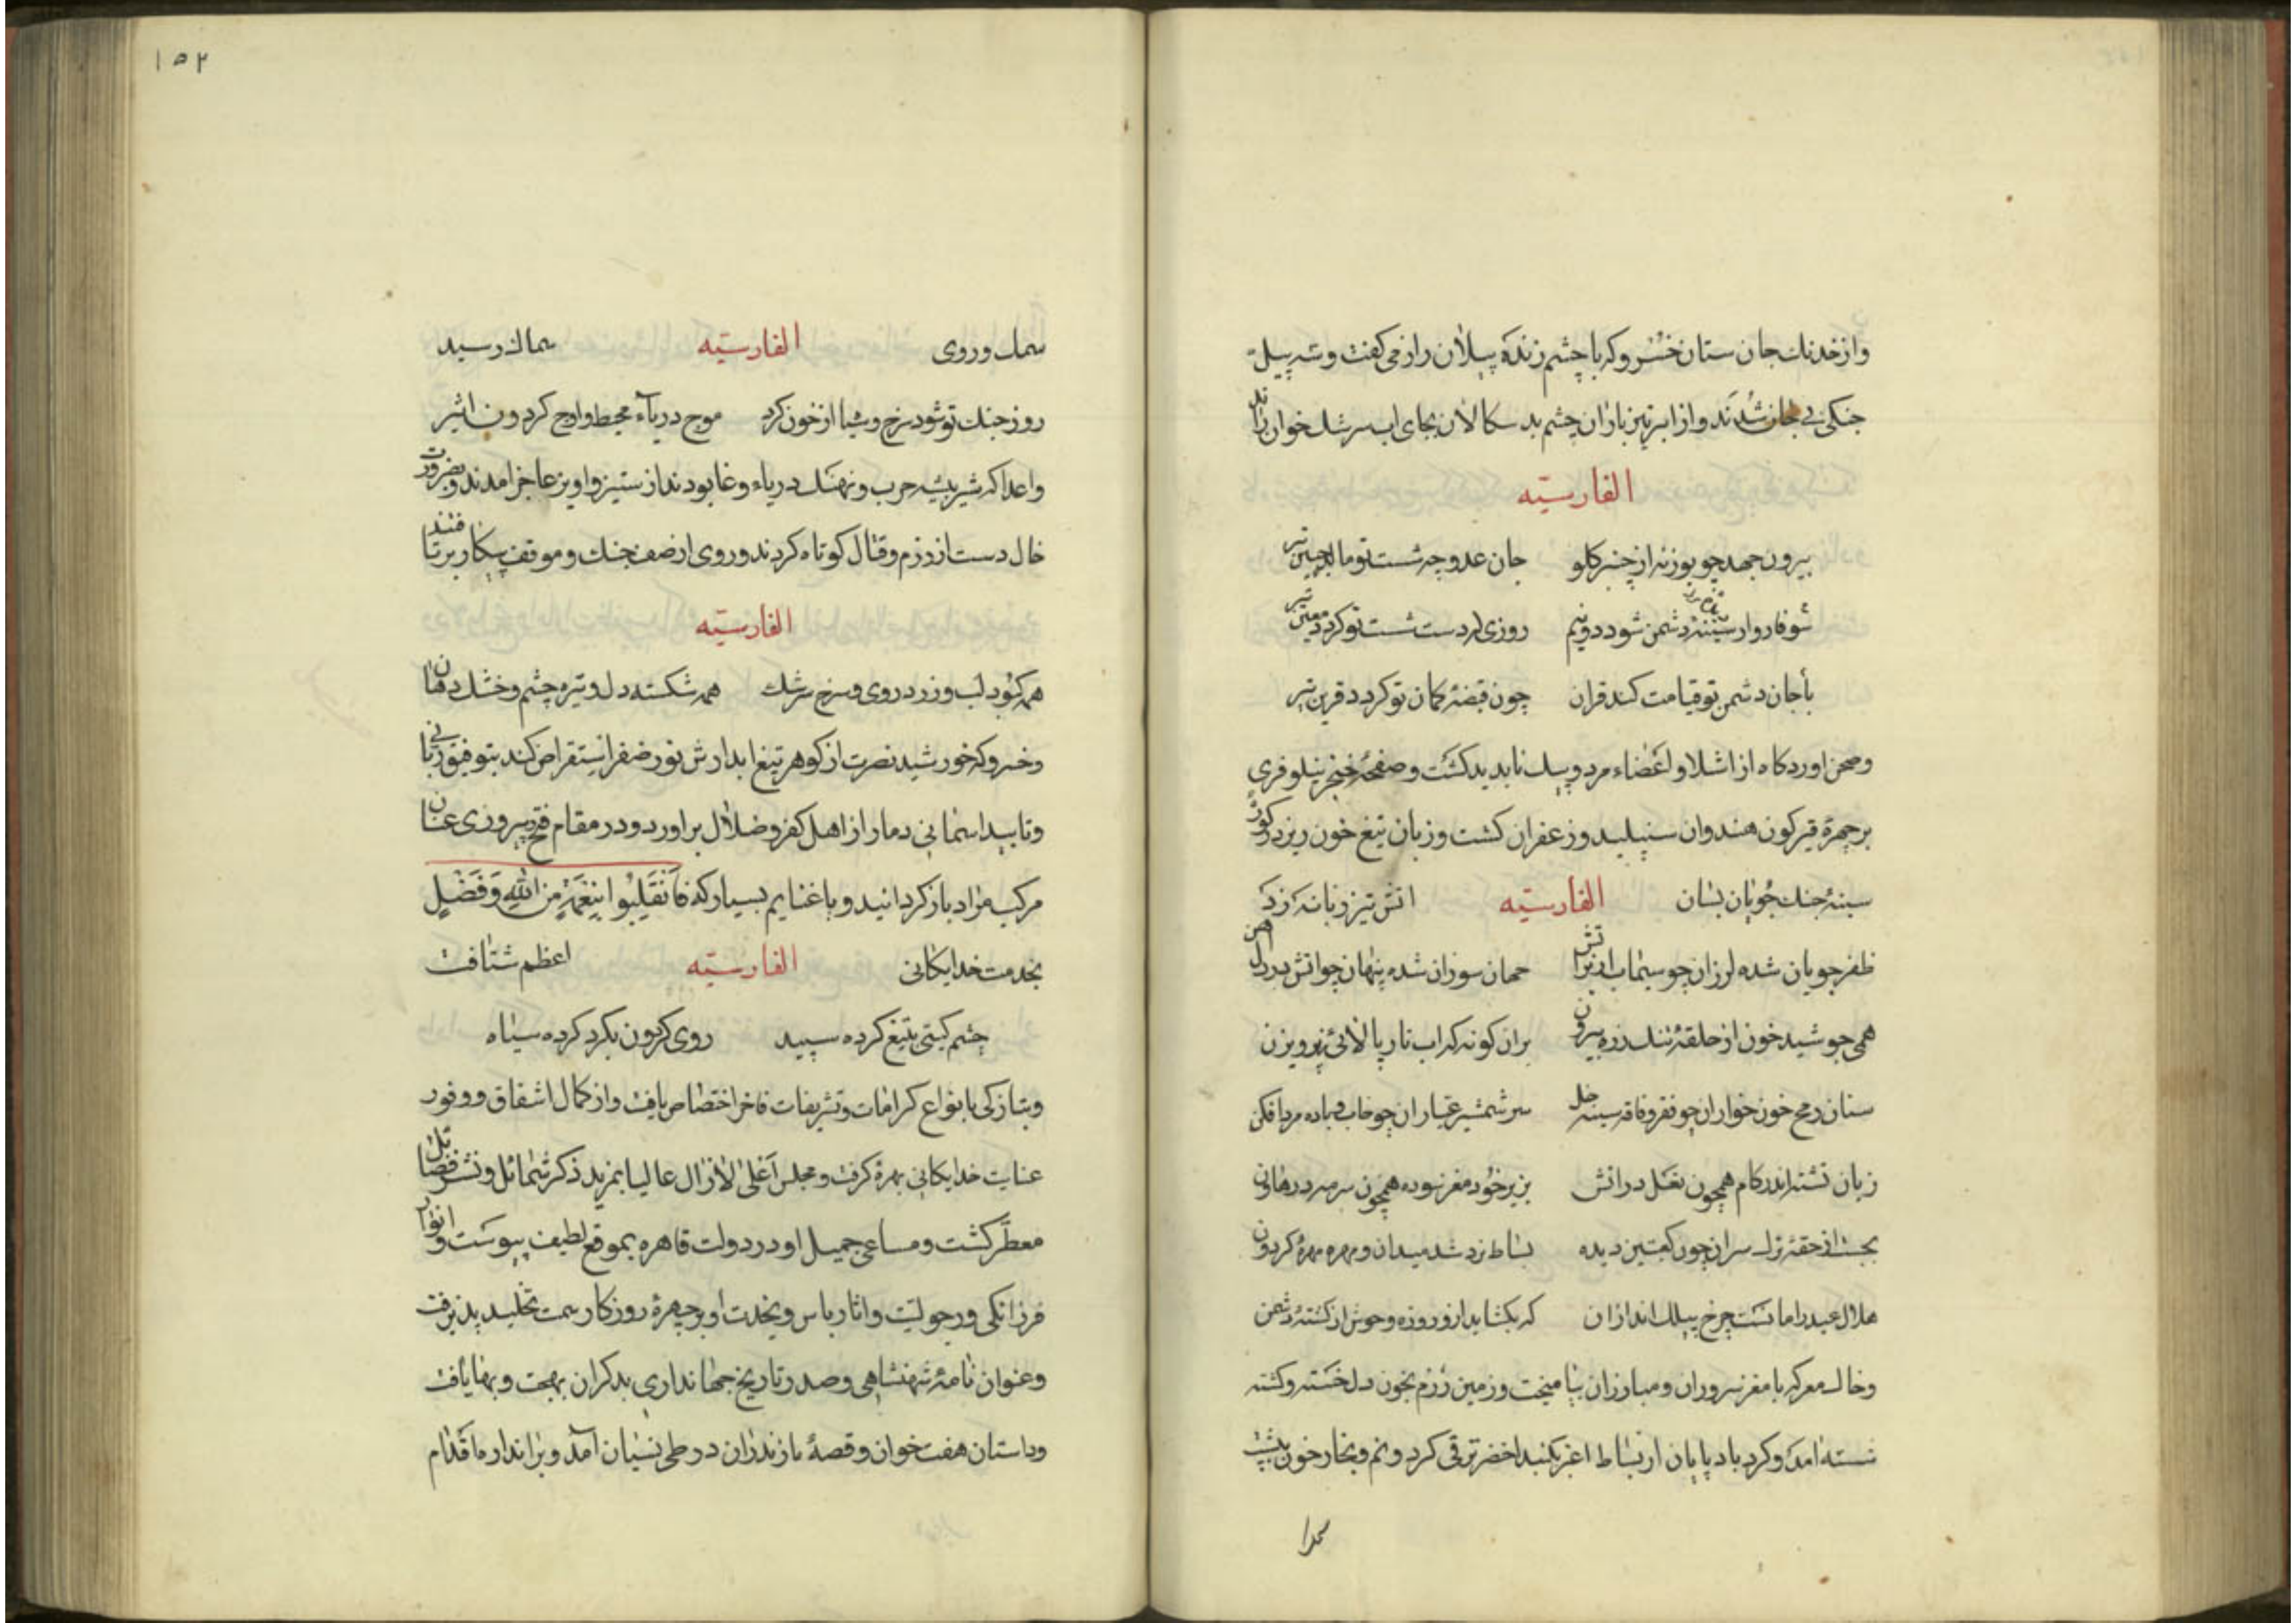 واز خدنك جان ستان خسرو كه با چشم زنده پیلان راز می كفت وشه پیل
جنكی بی جان شدند واز ابر تیر باران چشم بد سكالان بجای اب سرشك خوان راند
الفارسیّه
بیرون جهد چو بوزنه از چنبر كلو جان عدو چه شست تو مالد تیر
سوفاروار سینۀ دشمن شود دونیم روزی كه دست شست تو كردد تیر
بأجان دشمن تو قیامت كند قران چون قبضۀ كمان تو كردد قرین تیر
وصحن اوردكاه از اشلا واعضاء مرد وپیل نابدید كشت وصفحۀ خنجر نیلوفری
بر چهرۀ قیركون هندوان سنبلید وزعفران كشت وزبان تیغ خون ریز در كوره
سینۀ جنك جویان بسان الفارسیّه اتش تیز زبانه زد كه
ظفر جویان شده لرزان چو سیماب از بر اتش حمان سوزان شده پنهان چو اتش در دل اهن
همی جوشید خون از حلقۀ تنك زره بیرون بران كونه كه اب نار پالائی پرویزن
سنان رمح خون خواران چو فقر وفاقه سینه خل سر شمشیر عیاران چو خاب وباده مرد افكن
زبان تشنه اندر كام همچون نعل در اتش بزیر خود مغز سوده همچون سرمه در هاون
بجست از حقۀ ترك سران چون كعبتین دیده بساط نرد شد میدان ومهره مهرۀ كردون
هلال عید را مانست چرخ پیلك اندازان كه بكشاید ازو روزه وحوش از كشتۀ دشمن
وخاك معركه با مغز سروران ومبارزان بیامیخت وزمین رزم بخون دل خسته وكشته
شسته امد وكرد باد پایان از بساط اغبر بكنبد اخضر ترقی كرد ونم وبخار خون بپشت
۱۵۲
سمك وروی الفارسیّه سماك رسید
روز جنك تو شود سرخ وسیا از خون كرد موج دریاء محیط واوج كردون اثیر
واعدا كه شیر بیشه حرب ونهنك دریاء وغا بودند از ستیز واویز عاجز امدند وبضرورت
حال دست از رزم وقتال كوتاه كردند وروی از صف جنك وموقف پیكار برتافتند
الفارسیّه
همه كبود لب وزرد روی وسرخ سرشك همه شكسته دل وتیره چشم وخشك دهان
وخسرو كه خورشید نصرت از كوهر تیغ ابدارش نور ضفر استقراض كند بتوفیق ربانی
وتایید اسمانی دمار از اهل كفر وضلال براورد ودر مقام فتح وپیروزی عنان
مركب مراد باز كردانید وبا غنایم بسیار كه فَانْقَلَبُوا بِنِعْمَةٍ مِنَ اللّٰهِ وَفَضْلٍ
بخدمت خدایكانی الفارسیّه اعظم شتافت
چشم كیتی بتیغ كرده سپید روی كردون بكرد كرده سیاه
وبتازكی بانواع كرامات وتشریفات فاخر اختصاص یافت واز كمال اشفاق ووفور
عنایت خدایكانی بهره كرفت ومجلس اعلی لازال عالیا بمزید ذكر شمائل ونشر فضایل
معطر كشت ومساعی جمیل او در دولت قاهره بموقع لطیف پیوست وانوار
فرزانكی ورجولیت واثار باس ونجدت او بر چهرۀ روزكار سمت تخلید پذیرفت
وعنوان نامۀ شهنشاهی وصدر تاریخ جهانداری بذكر ان بهجت وبها یافت
وداستان هفت خوان وقصۀ مازندران در طی نسیان آمد وبر اندازه ما قدام